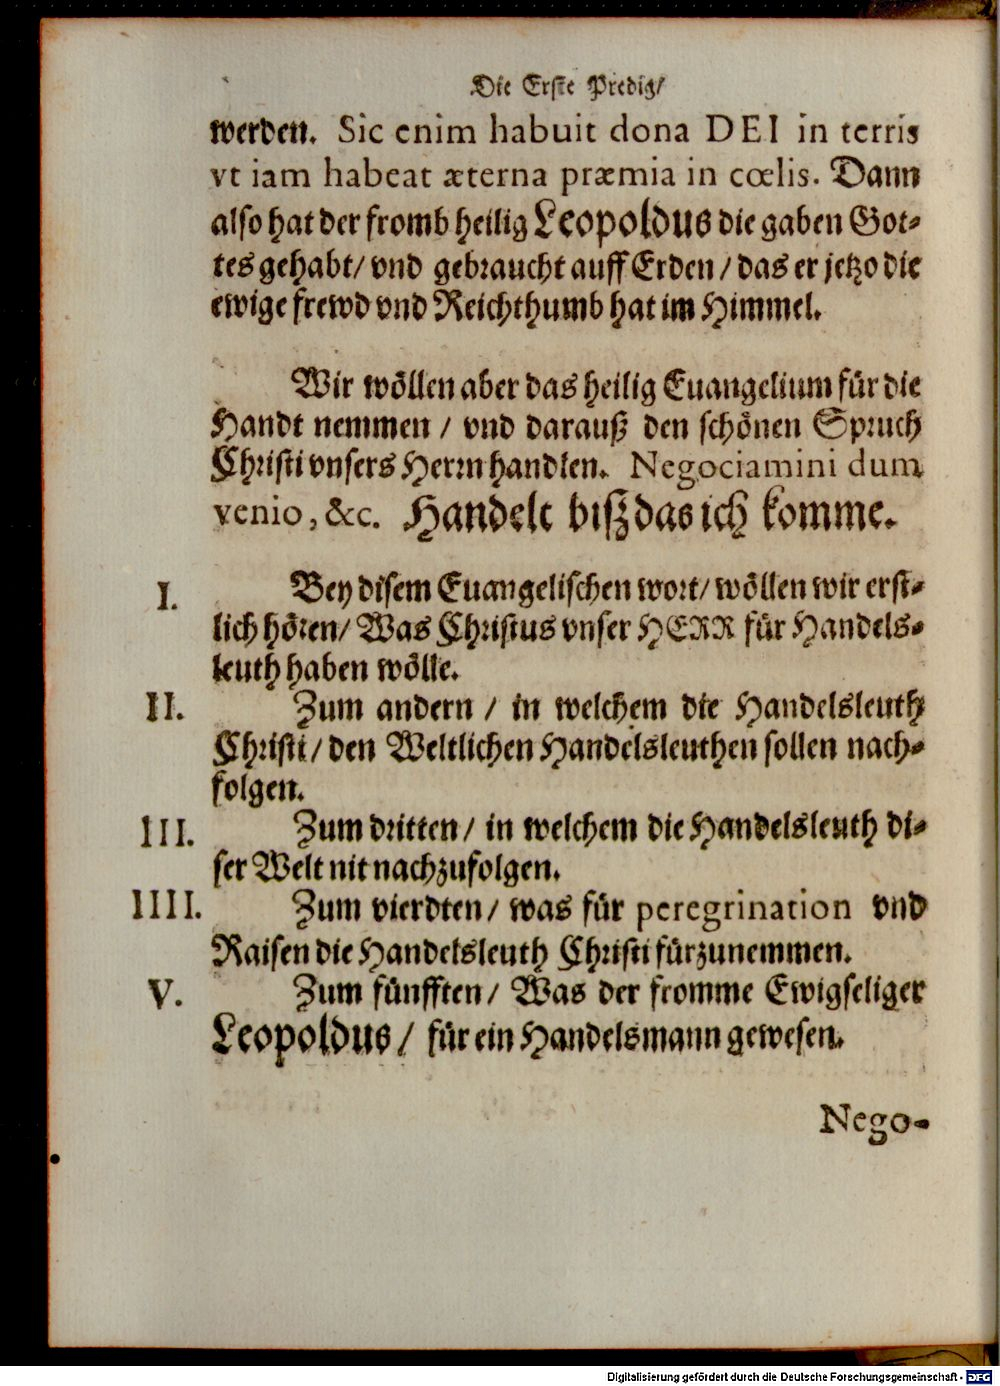 Die Erste Predig/
werden. Sic enim habuit dona DEI in terris
vt iam habeat æterna præmia in cœlis. Dann
also hat der fromb heilig Leopoldus die gaben Got-
tes gehabt/ vnd gebraucht auff Erden / das er jetzo die
ewige frewd vnd Reichthumb hat im Himmel.
Wir wöllen aber das heilig Euangelium für die
Handt nemmen / vnd darauß den schönen Spruch
Christi vnsers Herrn handlen. Negociamini dum
venio, &c. Handelt biß das ich komme.
I. Bey disem Euangelischen wort/ wöllen wir erst-
lich hören/ Was Christus vnser HERR für Handels-
leuth haben wölle.
II. Zum andern / in welchem die Handelsleuth
Christi/ den Weltlichen Handelsleuthen sollen nach-
folgen.
III. Zum dritten/ in welchem die Handelsleuth di-
ser Welt nit nachzufolgen.
IIII. Zum vierdten/ was für peregrination vnd
Raisen die Handelsleuth Christi fürzunemmen.
V. Zum fünfften/ Was der fromme Ewigseliger
Leopoldus / für ein Handelsmann gewesen.
Nego-
Digitalisierung gefördert durch die Deutsche Forschungsgemeinschaft - DFG